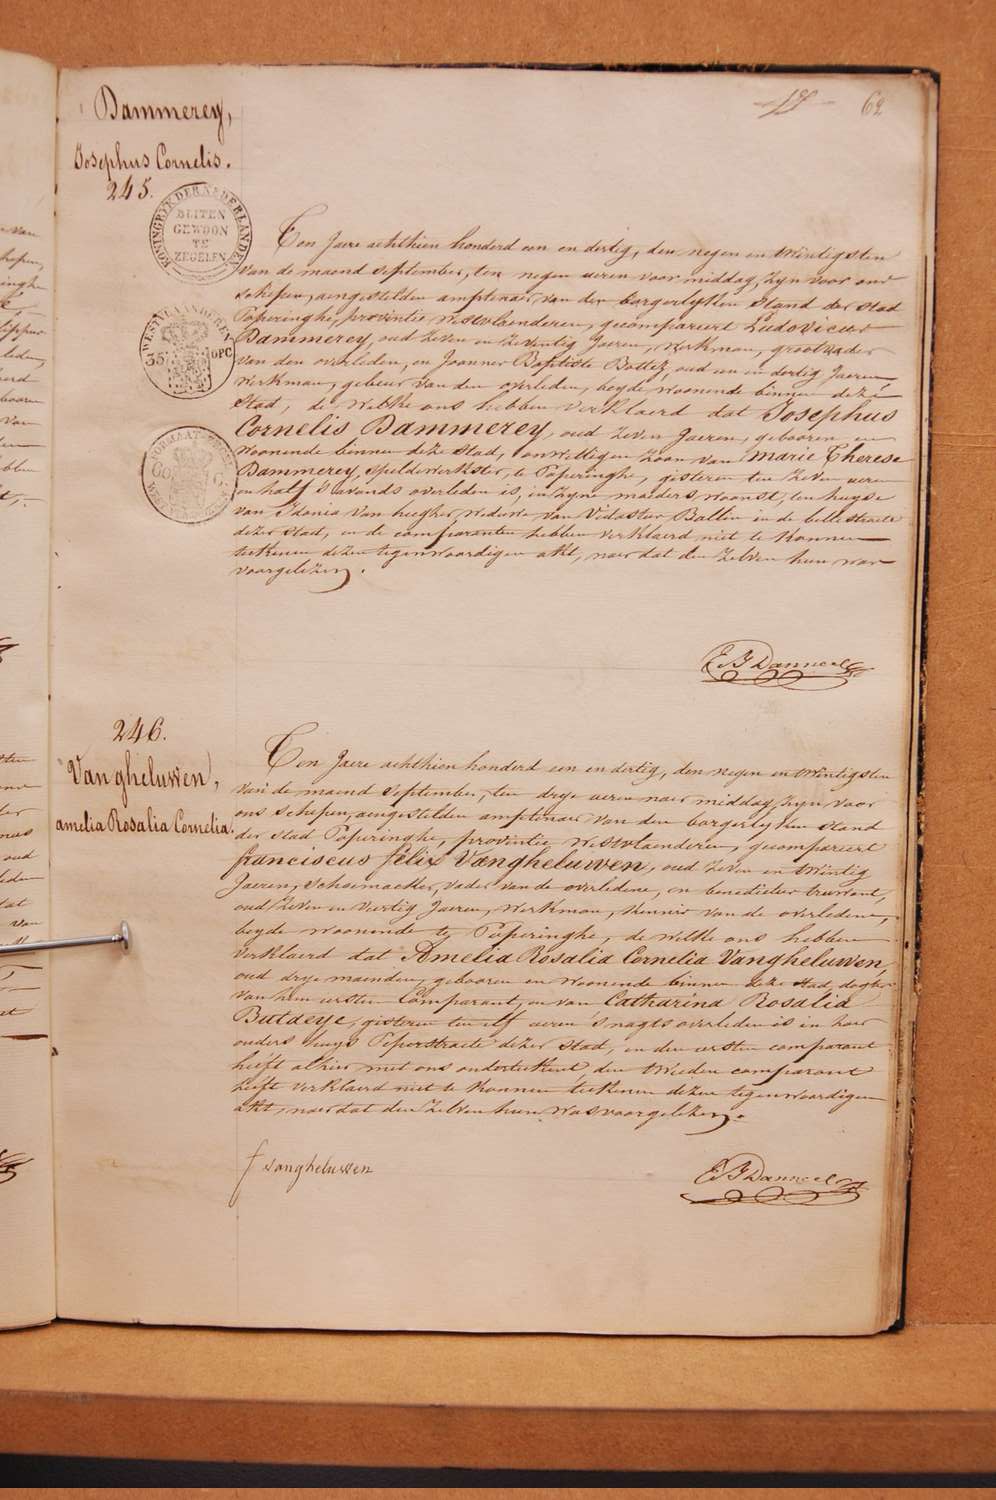 62
Dammerey,
Josephus Cornelis.
245.
KONINGRYK DER NEDERLANDEN
BUITEN
GEWOON
TE
ZEGELEN
Ten Jaere achthien honderd een en dertig, den negen en twintigsten
van de maend september, ten negen ueren voor middag, zyn voor ons
schepen, aengestelden amptenaer van den borgerlyken Stand der stad
Poperinghe, provintie westvlaenderen, gecompareert Ludovicus
Dammerey, oud zeven en zeventig Jaeren, werkman, grootvader
van den overleden, en Joannes Baptiste Battez, oud een en dertig Jaeren
werkman, gebeur van den overleden, beyde woonende binnen deze
Stad, de welke ons hebben verklaerd dat Josephus
Cornelis Dammerey, oud zeven Jaeren, gebooren en
woonende binnen deze stad, onwettigen zoon van Marie Therese
Dammerey, speldewerkster, te Poperinghe, gisteren ten zeven ueren
en half s'avonds overleden is, in zyne moeders woonst, ten huyse
van Idonia van heegher, weduwe van Vedaster Ballin in de bellestraete
dezer stad, en de comparanten hebben verklaerd niet te konnen
teekenen dezen tegenwoordigen akt, naer dat den zelven hun was
voorgelezen.
E J Danneel
246.
Vangheluwen,
amelia Rosalia Cornelia.
Ten Jaere achthien honderd een en dertig, den negen en twintigsten
van de maend september, ten drye ueren naer middag, zyn voor
ons schepen, aengestelden amptenaer van den borgerlyken stand
der stad Poperinghe, provintie Westvlaenderen, gecompareert
franciscus félix Vangheluwen, oud zeven en twintig
Jaeren, schoemaeker, vader van de overledene, en benedictus truwant,
oud zeven en veertig Jaeren, werkman, kennis van de overledene,
beyde woonende te Poperinghe, de welke ons hebben
verklaerd dat Amelia Rosalia Cornelia Vangheluwen,
oud drye maenden, gebooren en woonende binnen deze stad, dogter
van hun eersten Comparant, en van Catharina Rosalia
Butdeye, gisteren ten elf ueren 's nagts overleden is in haer
ouders huys Peperstraete dezer stad, en den eersten comparant
heeft alhier met ons onderteekent, den tweeden comparant
heeft verklaerd niet te konnen teekenen dezen tegenwoordigen
akt, naer dat den zelven hun was voorgelezen.
f vangheluwen
E J Danneel